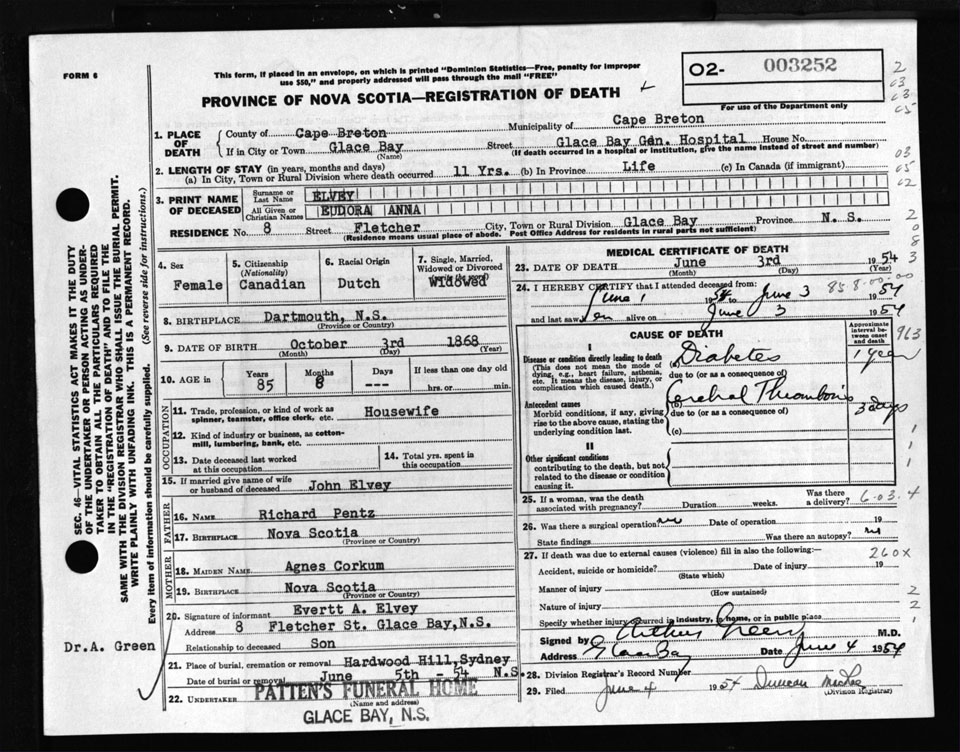 FORM 6
This form, if placed in an envelope, on which is printed "Dominion Statistics—Free, penalty for improper
use $50," and properly addressed will pass through the mail "FREE"
PROVINCE OF NOVA SCOTIA—REGISTRATION OF DEATH
O2- 003252
For use of the Department only
1. PLACE OF DEATH
County of Cape Breton Municipality of Cape Breton
If in City or Town Glace Bay Street Glace Bay Gen. Hospital House No.
(Name) (If death occurred in a hospital or institution, give the name instead of street and number)
2. LENGTH OF STAY (in years, months and days)
(a) In City, Town or Rural Division where death occurred 11 Yrs. (b) In Province Life (c) In Canada (if immigrant)
3. PRINT NAME OF DECEASED
Surname or Last Name ELVEY
All Given or Christian Names EUDORA ANNA
RESIDENCE No. 8 Street Fletcher City, Town or Rural Division Glace Bay Province N. S.
(Residence means usual place of abode. Post Office Address for residents in rural parts not sufficient)
4. Sex Female
5. Citizenship (Nationality) Canadian
6. Racial Origin Dutch
7. Single, Married, Widowed or Divorced (write the word) Widowed
8. BIRTHPLACE Dartmouth, N.S.
(Province or Country)
9. DATE OF BIRTH October 3rd 1868
(Month) (Day) (Year)
10. AGE in Years Months Days If less than one day old
85 8 --- hrs. or min.
OCCUPATION
11. Trade, profession, or kind of work as spinner, teamster, office clerk, etc. Housewife
12. Kind of industry or business, as cotton-mill, lumbering, bank, etc.
13. Date deceased last worked at this occupation
14. Total yrs. spent in this occupation
15. If married give name of wife or husband of deceased John Elvey
FATHER
16. NAME Richard Pentz
17. BIRTHPLACE Nova Scotia
(Province or Country)
MOTHER
18. MAIDEN NAME Agnes Corkum
19. BIRTHPLACE Nova Scotia
(Province or Country)
20. Signature of informant Evertt A. Elvey
Address 8 Fletcher St. Glace Bay, N.S.
Relationship to deceased Son
21. Place of burial, cremation or removal Hardwood Hill, Sydney
Date of burial or removal June 5th - 54 N.S.
22. UNDERTAKER PATTEN'S FUNERAL HOME
(Name and address)
GLACE BAY, N.S.
MEDICAL CERTIFICATE OF DEATH
23. DATE OF DEATH June 3rd 1954
(Month) (Day) (Year)
24. I HEREBY CERTIFY that I attended deceased from:
June 1 1954 to June 3 1954
and last saw alive on June 3 1954
CAUSE OF DEATH
Approximate interval between onset and death
I
Disease or condition directly leading to death
(This does not mean the mode of dying, e.g., heart failure, asthenia, etc. It means the disease, injury, or complication which caused death.)
(a) Diabetes 1 year
due to (or as a consequence of)
Antecedent causes
Morbid conditions, if any, giving rise to the above cause, stating the underlying condition last.
(b) Cerebral Thrombosis 3 days
due to (or as a consequence of)
(c)
II
Other significant conditions
contributing to the death, but not related to the disease or condition causing it.
25. If a woman, was the death associated with pregnancy? Duration weeks. Was there a delivery?
26. Was there a surgical operation? no Date of operation 19
State findings Was there an autopsy? no
27. If death was due to external causes (violence) fill in also the following:—
Accident, suicide or homicide? Date of injury 19
(State which)
Manner of injury
(How sustained)
Nature of injury
Specify whether injury occurred in industry, in home, or in public place
Signed by Arthur Green M.D.
Address Glace Bay Date June 4 1954
28. Division Registrar's Record Number
29. Filed June 4 1954 Duncan
(Division Registrar)
SEC. 46—VITAL STATISTICS ACT MAKES IT THE DUTY
OF THE UNDERTAKER OR PERSON ACTING AS UNDER-
TAKER TO OBTAIN ALL THE PARTICULARS REQUIRED
IN THE "REGISTRATION OF DEATH" AND TO FILE THE
SAME WITH THE DIVISION REGISTRAR WHO SHALL ISSUE THE BURIAL PERMIT.
WRITE PLAINLY WITH UNFADING INK. THIS IS A PERMANENT RECORD.
Every item of information should be carefully supplied. (See reverse side for instructions.)
Dr.A. Green
858-00-00
963
6-03-4
260X